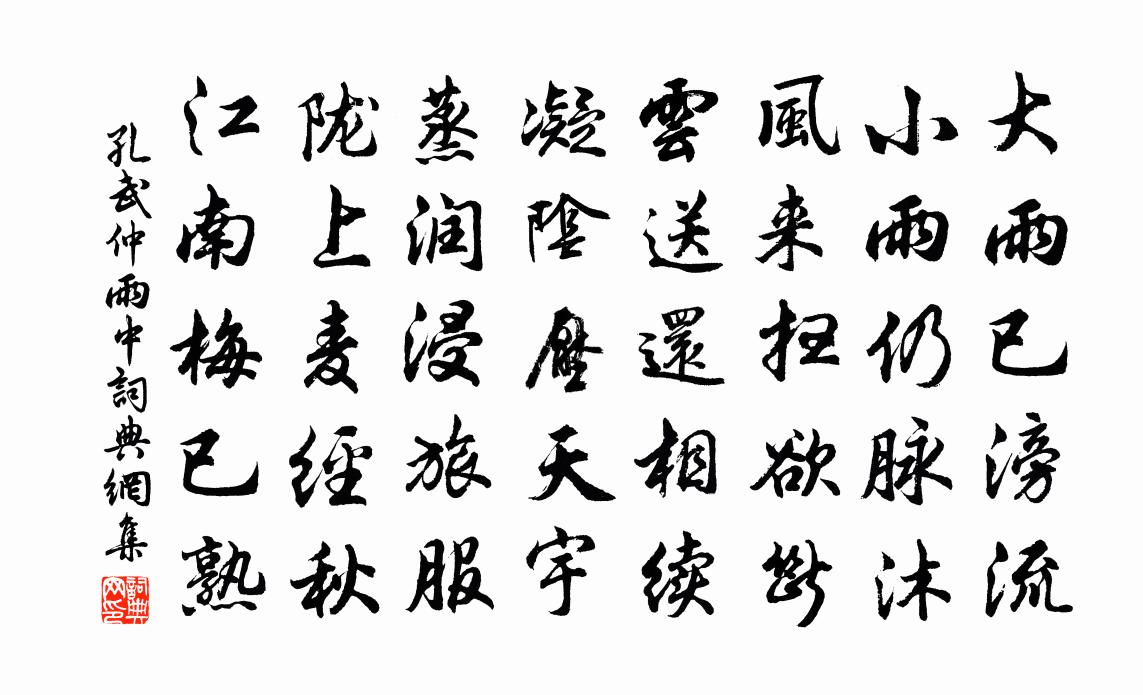 大雨已滂流
小雨仍脉沐
風来扫欲斷
雲送還相续
凝陰壓天宇
蒸润浸旅服
陇上麦經秋
江南梅已熟
孔武仲雨中詞典網集
詞典